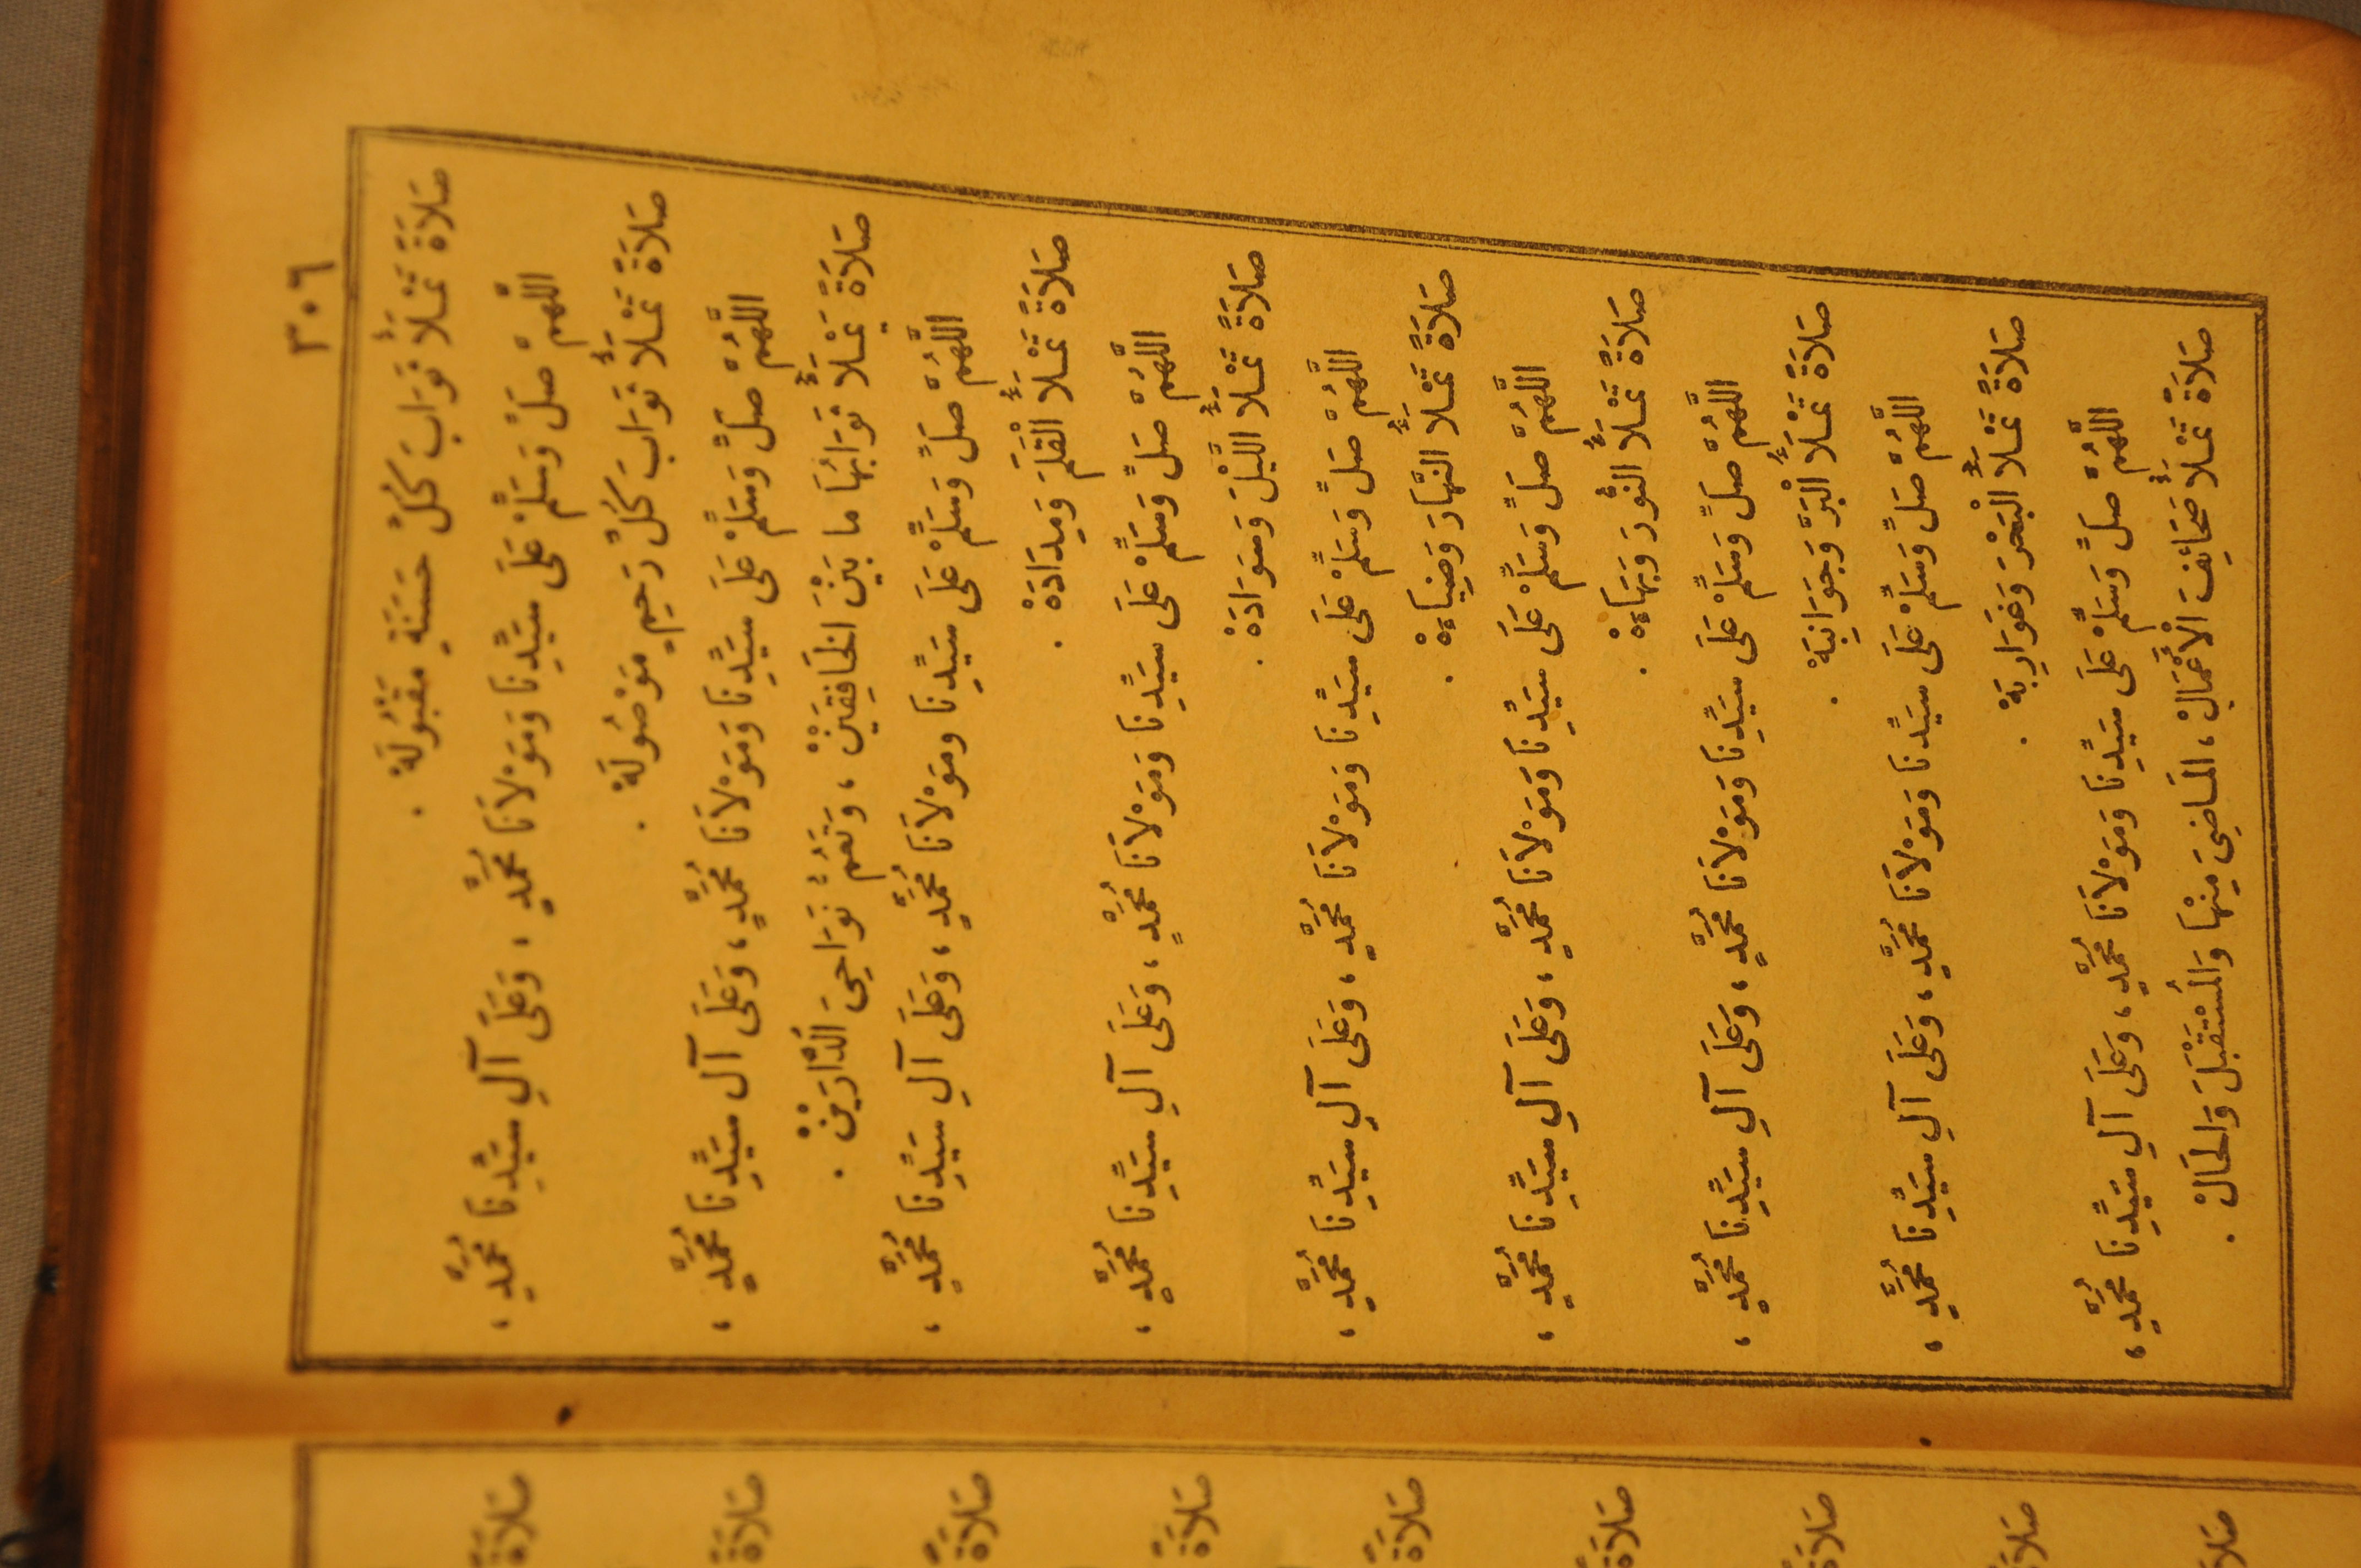 ٣٠٦
صَلاَةً تَمْلَأُ ثَوَابَ كُلِّ حَسَنَةٍ مَقْبُولَهْ .
اللَّهُمَّ صَلِّ وَسَلِّمْ عَلَى سَيِّدِنَا وَمَوْلاَنَا مُحَمَّدٍ ، وَعَلَى آلِ سَيِّدِنَا مُحَمَّدٍ ،
صَلاَةً تَمْلَأُ ثَوَابَ كُلِّ رَحِيمٍ مَوْصُولَهْ .
اللَّهُمَّ صَلِّ وَسَلِّمْ عَلَى سَيِّدِنَا وَمَوْلاَنَا مُحَمَّدٍ ، وَعَلَى آلِ سَيِّدِنَا مُحَمَّدٍ ،
صَلاَةً يَمْلَأُ ثَوَابُهَا ما بَيْنَ الْخَافِقَيْنْ ، وَتَعُمُّ نَوَاحِىَ الدَّارَيْنْ .
اللَّهُمَّ صَلِّ وَسَلِّمْ عَلَى سَيِّدِنَا ومَوْلاَنَا مُحَمَّدٍ ، وَعَلَى آلِ سَيِّدِنَا مُحَمَّدٍ ،
صَلاَةً تَمْلَأُ الْقَلَمَ وَمِدَادَهْ .
اللَّهُمَّ صَلِّ وَسَلِّمْ عَلَى سَيِّدِنَا وَمَوْلاَنَا مُحَمَّدٍ ، وَعَلَى آلِ سَيِّدِنَا مُحَمَّدٍ ،
صَلاَةً تَمْلَأُ اللَّيْلَ وَسَوَادَهْ .
اللَّهُمَّ صَلِّ وَسَلِّمْ عَلَى سَيِّدِنَا وَمَوْلاَنَا مُحَمَّدٍ ، وَعَلَى آلِ سَيِّدِنَا مُحَمَّدٍ ،
صَلاَةً تَمْلَأُ النَّهَارَ وَضِيَاءَهْ .
اللَّهُمَّ صَلِّ وَسَلِّمْ عَلَى سَيِّدِنَا وَمَوْلاَنَا مُحَمَّدٍ ، وَعَلَى آلِ سَيِّدِنَا مُحَمَّدٍ ،
صَلاَةً تَمْلَأُ النُّورَ وَبَهَاءَهْ .
اللَّهُمَّ صَلِّ وَسَلِّمْ عَلَى سَيِّدِنَا وَمَوْلاَنَا مُحَمَّدٍ ، وَعَلَى آلِ سَيِّدِنَا مُحَمَّدٍ ،
صَلاَةً تَمْلَأُ الْبَرَّ وَجَوَانِبَهْ .
اللَّهُمَّ صَلِّ وَسَلِّمْ عَلَى سَيِّدِنَا وَمَوْلاَنَا مُحَمَّدٍ ، وَعَلَى آلِ سَيِّدِنَا مُحَمَّدٍ ،
صَلاَةً تَمْلَأُ الْبَحْرَ وَغَوَارِبَهْ .
اللَّهُمَّ صَلِّ وَسَلِّمْ عَلَى سَيِّدِنَا وَمَوْلاَنَا مُحَمَّدٍ ، وَعَلَى آلِ سَيِّدِنَا مُحَمَّدٍ ،
صَلاَةً تَمْلَأُ صَحَائِفَ الْأَعْمَالْ ، الْمَاضِىَ مِنْهَا وَالْمُسْتَقْبَلَ وَالْحَالْ .
صَلاَةً
صَلاَةً
صَلاَةً
صَلاَةً
صَلاَةً
صَلاَةً
صَلاَةً
صَلاَةً